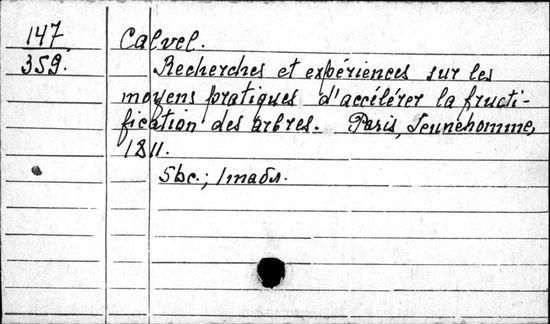 147
359.
Calvel.
Recherches et expériences sur les
moyens pratiques d'accélérer la fructi-
fication des arbres. Paris, Jeunehomme,
1811.
5bc.; 1табл.